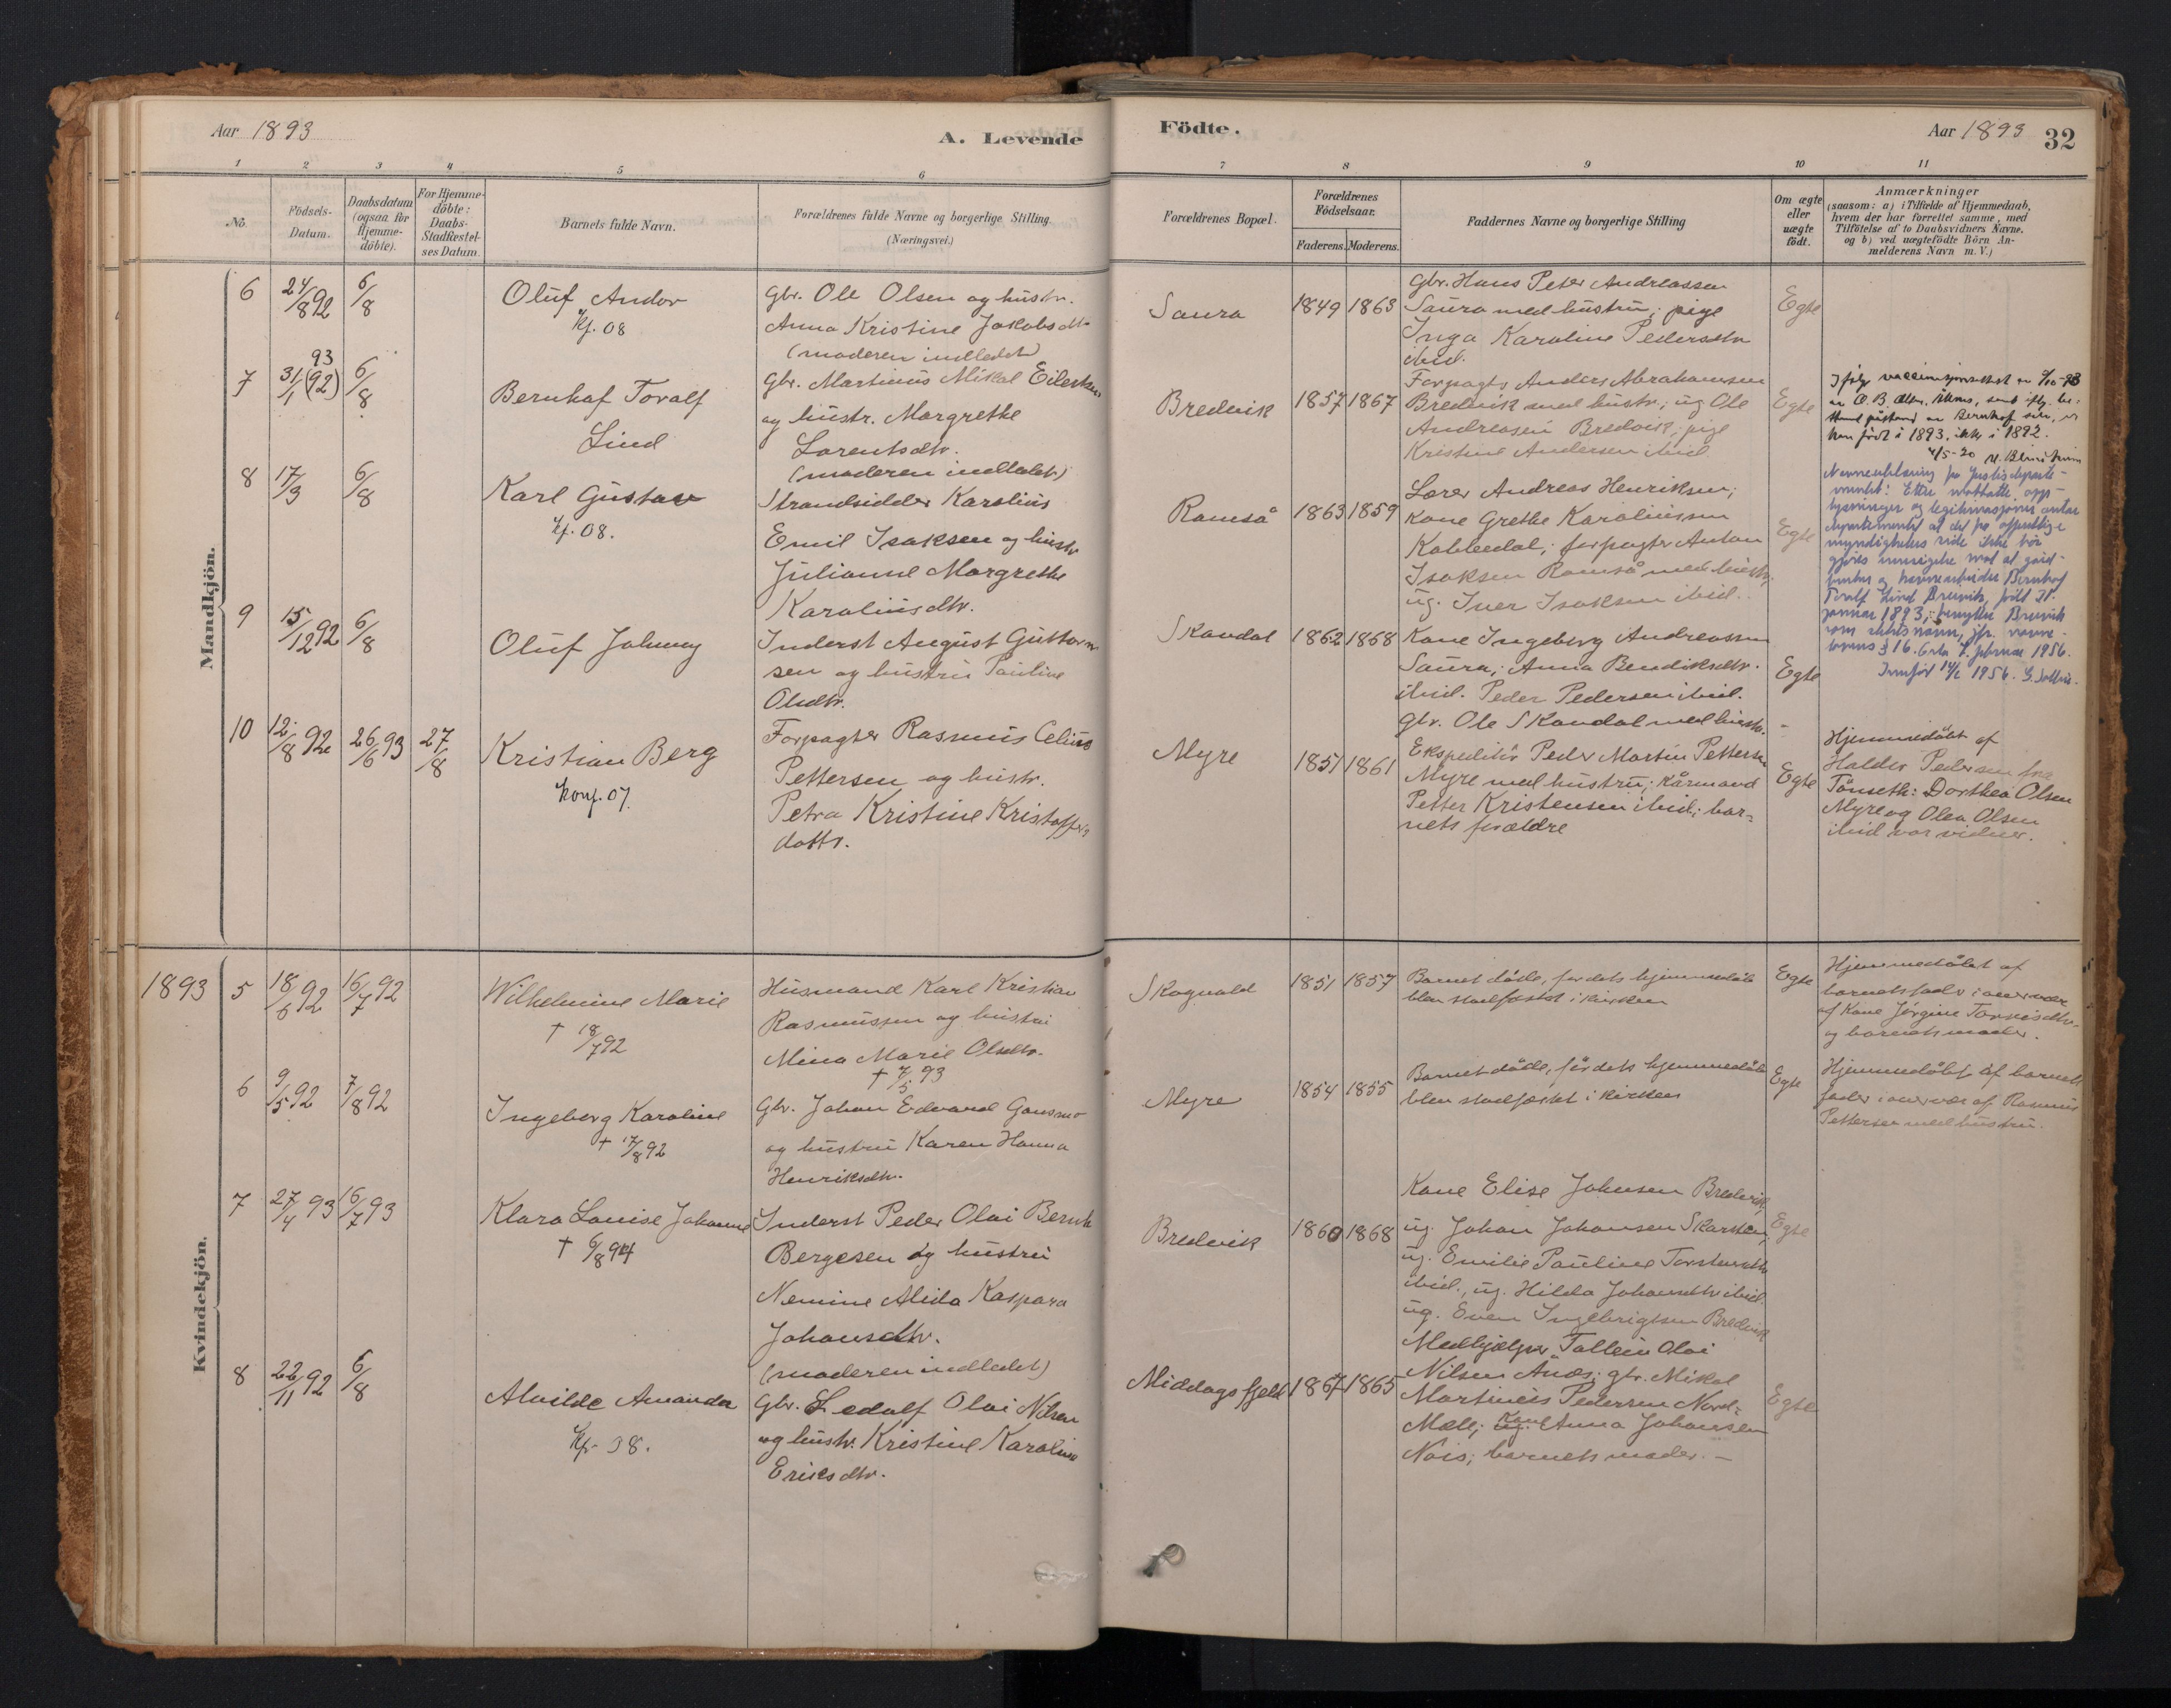 Aar 1893
A. Levende
Födte.
Aar 1893
32
1 2 3 4 5 6 7 8 9 10 11
No.
Födsels-
Datum.
Daabsdatum
(ogsaa for
Hjemme-
döbte).
For Hjemme-
döbte:
Daabs-
Stadfæstel-
ses Datum.
Barnets fulde Navn.
Forældrenes fulde Navne og borgerlige Stilling.
(Næringsvei.)
Forældrenes Bopæl.
Forældrenes
Födselsaar.
Faderens. Moderens.
Faddernes Navne og borgerlige Stilling
Om ægte
eller
uægte
födt.
Anmærkninger
(saasom: a) i Tilfælde af Hjemmedaab,
hvem der har forrettet samme, med
Tilföielse af to Daabsvidners Navne.
og b) ved uægtefödte Börn An-
melderens Navn m. V.)
Mandkjön.
6
24/8 92
6/8
Oluf Andor
kf. 08
Gbr. Ole Olsen og hustr.
Anna Kristine Jakobsdtr.
(moderen indledet)
Saura
1849 1863
Gbr. Hans Peter Andreassen
Saura med hustru; pige
Inga Karoline Pedersdtr
ibid.
Egte
7
93
31/1 (92)
6/8
Bernhof Toralf
Lind
Gbr. Martinus Mikal Eilertsen
og hustr. Margrethe
Lorentsdtr.
(moderen indledet)
Bredvik
1857 1867
Forpagter Anders Abrahamsen
Bredvik med hustr.; ug. Ole
Andreasen Bredvik; pige
Kristine Andersen ibid.
Egte
han født i 1893, ikke i 1892.
4/5-20
8
17/3
6/8
Karl Gustav
kf. 08.
Strandsidder Karolius
Emil Isaksen og hustr
Julianne Margrethe
Karoliusdtr.
Ramså
1863 1859
Lærer Andreas Henriksen;
Kone Grethe Karoliussen
Kobbedal; forpagter Anton
Isaksen Ramså med hustr.
ug. Iver Isaksen ibid.
Egte
Navneutløsning fra Justisdeparte-
mentet: Etter mottatte opp-
lysninger og legitimasjoner antar
departementet at det fra offentlige
myndigheters side ikke bør
gjøres innsigelse mot at gård-
bruker og havnearbeider Bernhof
Toralf Lind Brevik, født 31.
januar 1893, benytter Brevik
som slektsnavn, jfr. navne-
lovens § 16. Oslo 7. februar 1956.
Innført 14/2 1956.
9
15/12 92
6/8
Oluf Johnny
Inderst August Guttorm
sen og hustru Pauline
Olsdtr.
Skavdal
1862 1868
Kone Ingeborg Andreassen
Saura; Anna Bendiksdtr.
ibid. Peder Pedersen ibid.
Gbr. Ole Skavdal med hustr.
Egte
10
12/8 92
26/6 93
27/8
Kristian Berg
konf. 07.
Forpagter Rasmus Celius
Pettersen og hustr.
Petra Kristine Kristoffers
dattr.
Myre
1851 1861
Ekspeditør Peder Martin Pettersen
Myre med hustru; kårmand
Petter Kristensen ibid; bar-
nets forældre
Egte
Hjemmedöbt af
Haldor Pedersen fra
Tönseth: Dorthea Olsen
Myre og Olea Olsen
ibid var vidner.
Kvindekjön.
1893
5
18/6 92
16/7 92
Wilhelmine Marie
† 18/7 92
Husmand Karl Kristian
Rasmussen og hustru
Mina Marie Olsdtr.
† 7/5 93
Skogvold
1851 1857
Barnet döde, før dets hjemmedåb
blev stadfæstet i kirken
Egte
Hjemmedöbt af
barnets fader i overvær
af Kone Jörgine
og barnets moder.
6
9/5 92
7/8 92
Ingeborg Karoline
† 17/8 92
Gbr. Johan Edvard Gausmo
og hustru Karen Hanna
Henriksdtr.
Myre
1854 1855
Barnet döde, før dets hjemmedåb
blev stadfæstet i kirken
Egte
Hjemmedöbt af barnets
fader i overvær af Rasmus
Pettersen med hustru.
7
27/4 93
16/7 93
Klara Louise Johanne
† 6/8 94
Inderst Peder Olai Bernh
Bergesen og hustru
Nemine Alida Kaspara
Johansdtr.
(moderen indledet)
Bredvik
1860 1868
Kone Elise Johnsen Bredvik,
ug. Johan Johansen Skarsten,
ug. Emilie Pauline Torstensdtr
ibid., ug. Hilda Johansdtr ibid.
ug. Even Ingebrigtsen Bredvik
Egte
8
22/11 92
6/8
Alvilde Amanda
kf. 08.
Gbr. Ledolf Olai Nilsen
og hustr. Kristine Karoline
Eriksdtr.
Middagsfjeld
1867 1865
Medhjælper Tollein Olai
Nilsen Ånæs; gbr. Mikal
Martineus Pedersen Nord-
Mele; Kone Anna Johansen
Nois; barnets moder. —
Egte